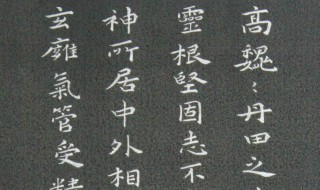 高巍〻丹田之
靈根堅固志不
神所居中外相
玄廱氣管受精